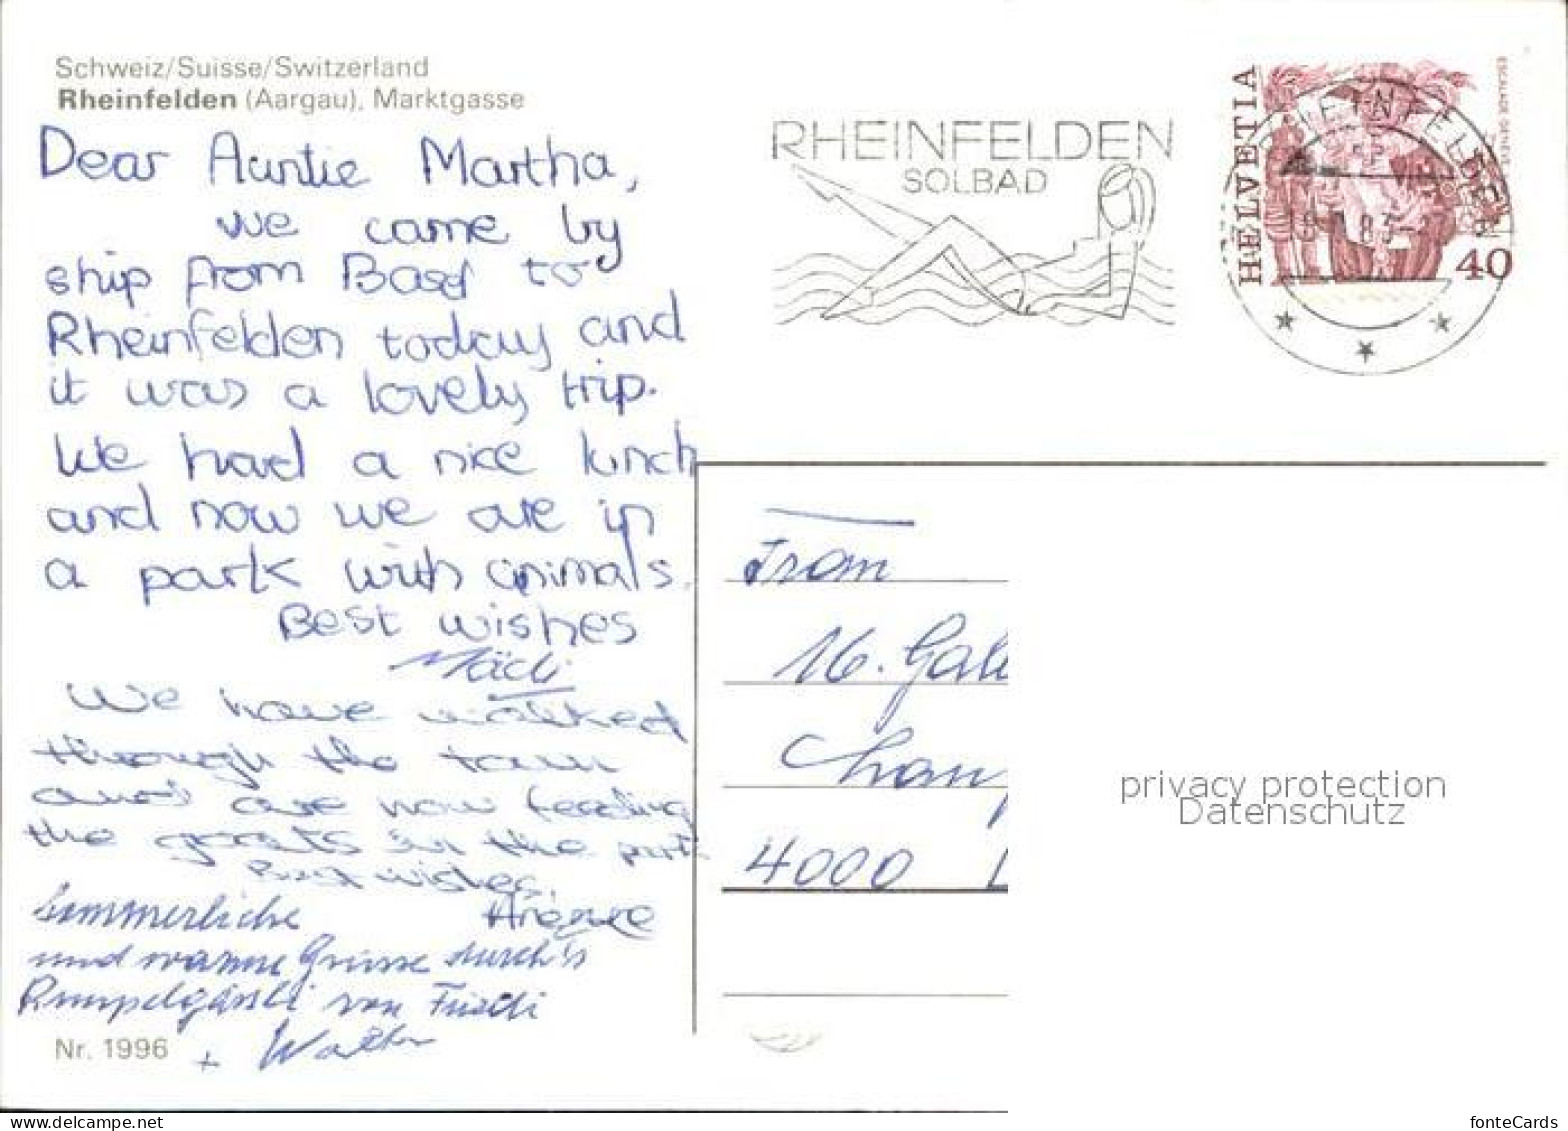 Schweiz/Suisse/Switzerland
Rheinfelden (Aargau), Marktgasse
Dear Auntie Martha,
We came by
ship from Basel to
Rheinfelden today and
it was a lovely trip.
We had a nice lunch
and now we are in
a park with animals.
Best wishes
Mädi
We have walked
through the town
and are now feeding
the goats in the park
Best wishes,
Sommerliche
und warme Grüsse durch's
Rumpelgässli von Friedi
+ Walter
Nr. 1996
RHEINFELDEN
SOLBAD
HELVETIA
ESCALADE GENÈVE
40
RHEINFELDEN
From
16. Gal
Cham
4000
privacy protection
Datenschutz
fonteCards